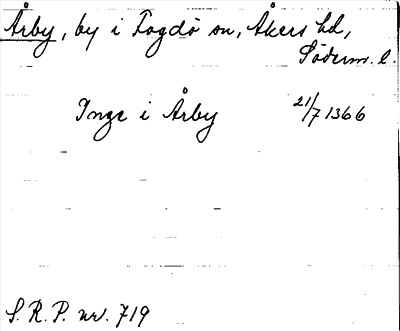 Årby, by i Fogdö sn, Åkers hd,
Söderm. l.
Inge i Årby 21/7 1366
S. R. P. nr. 719